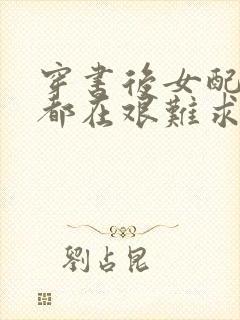 穿書後女配
都在艱難求
劉占昆